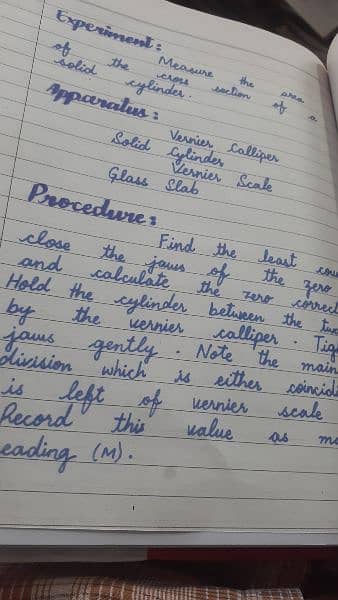 Experiment:
Measure the area
of the cross section of a
solid cylinder.
Apparatus:
Vernier Calliper
Solid Cylinder
Vernier Scale
Glass Slab
Procedure:
Find the least cou
close the jaws of the zero
and calculate the zero correct
Hold the cylinder between the tw
by the vernier calliper. Tig
jaws gently. Note the main
division which is either coincid
is left of vernier scale
Record this value as ma
eading (M).